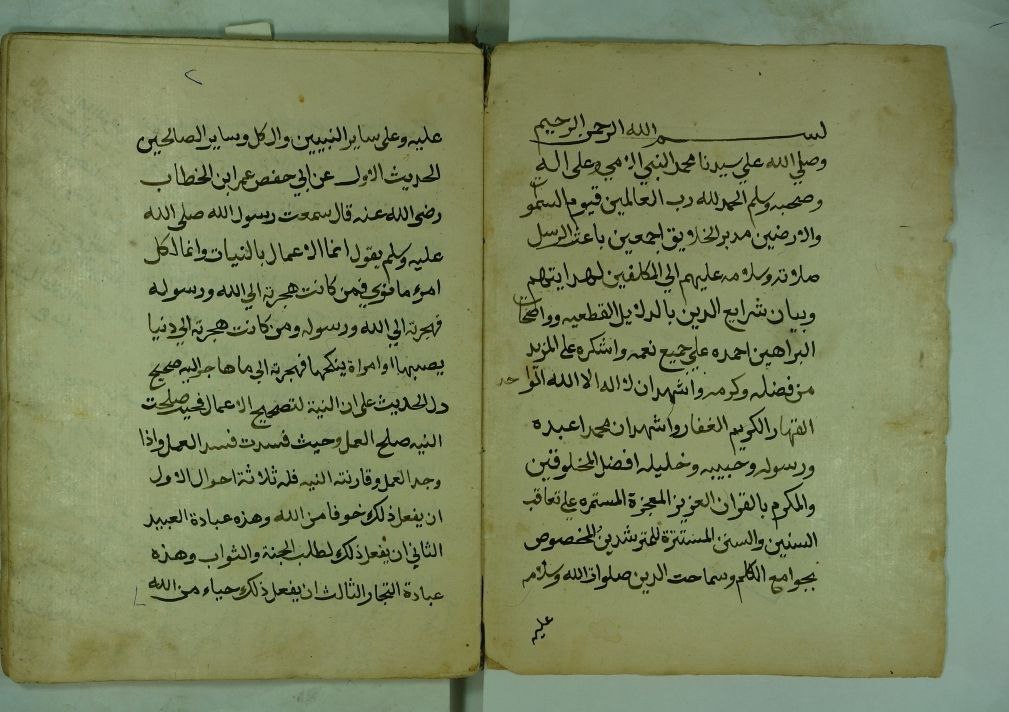 بسم الله الرحمن الرحيم
وصلي الله علي سيدنا محمد النبي الامي وعلى اله
وصحبه وسلم الحمد لله رب العالمين قيوم السموات
والارضين مدبر الخلايق اجمعين باعث الرسل
صلاته وسلامه عليهم الي المكلفين لهدايتهم
وبيان شرايع الدين بالدلايل القطعيه وواضحات
البراهين احمده علي جميع نعمه واشكره علي المزيد
من فضله وكرمه واشهد ان لا اله الا الله الواحد
القهار الكريم الغفار واشهد ان محمدا عبده
ورسوله وحبيبه وخليله افضل المخلوقين
والمكرم بالقران العزيز المعجزة المستمره علي تعاقب
السنين والسنن المستنرة للمترشدين المخصوص
بجوامع الكلم وسماحت الدين صلوات الله وسلام
عليه
٢
عليه وعلى ساير النبيين وال كل وساير الصالحين
الحديث الاول عن ابي حفص عمر ابن الخطاب
رضي الله عنه قال سمعت رسول الله صلي الله
عليه وسلم يقول انما الاعمال بالنيات وانما لكل
امرء ما نوي فمن كانت هجرته الي الله ورسوله
فهجرته الي الله ورسوله ومن كانت هجرته الي دنيا
يصيبها او امراة ينكحها فهجرته الي ما هاجر اليه صحيح
دل الحديث على ان النية لتصحيح الاعمال فحيث صلحت
النيه صلح العمل وحيث فسدت فسد العمل واذا
وجد العمل وقارنته النيه فله ثلاثة احوال الاول
ان يفعل ذلك خوفا من الله وهذه عبادة العبيد
الثاني ان يفعل ذلك لطلب الجنة والثواب وهذه
عبادة التجار الثالث ان يفعل ذلك حياء من الله